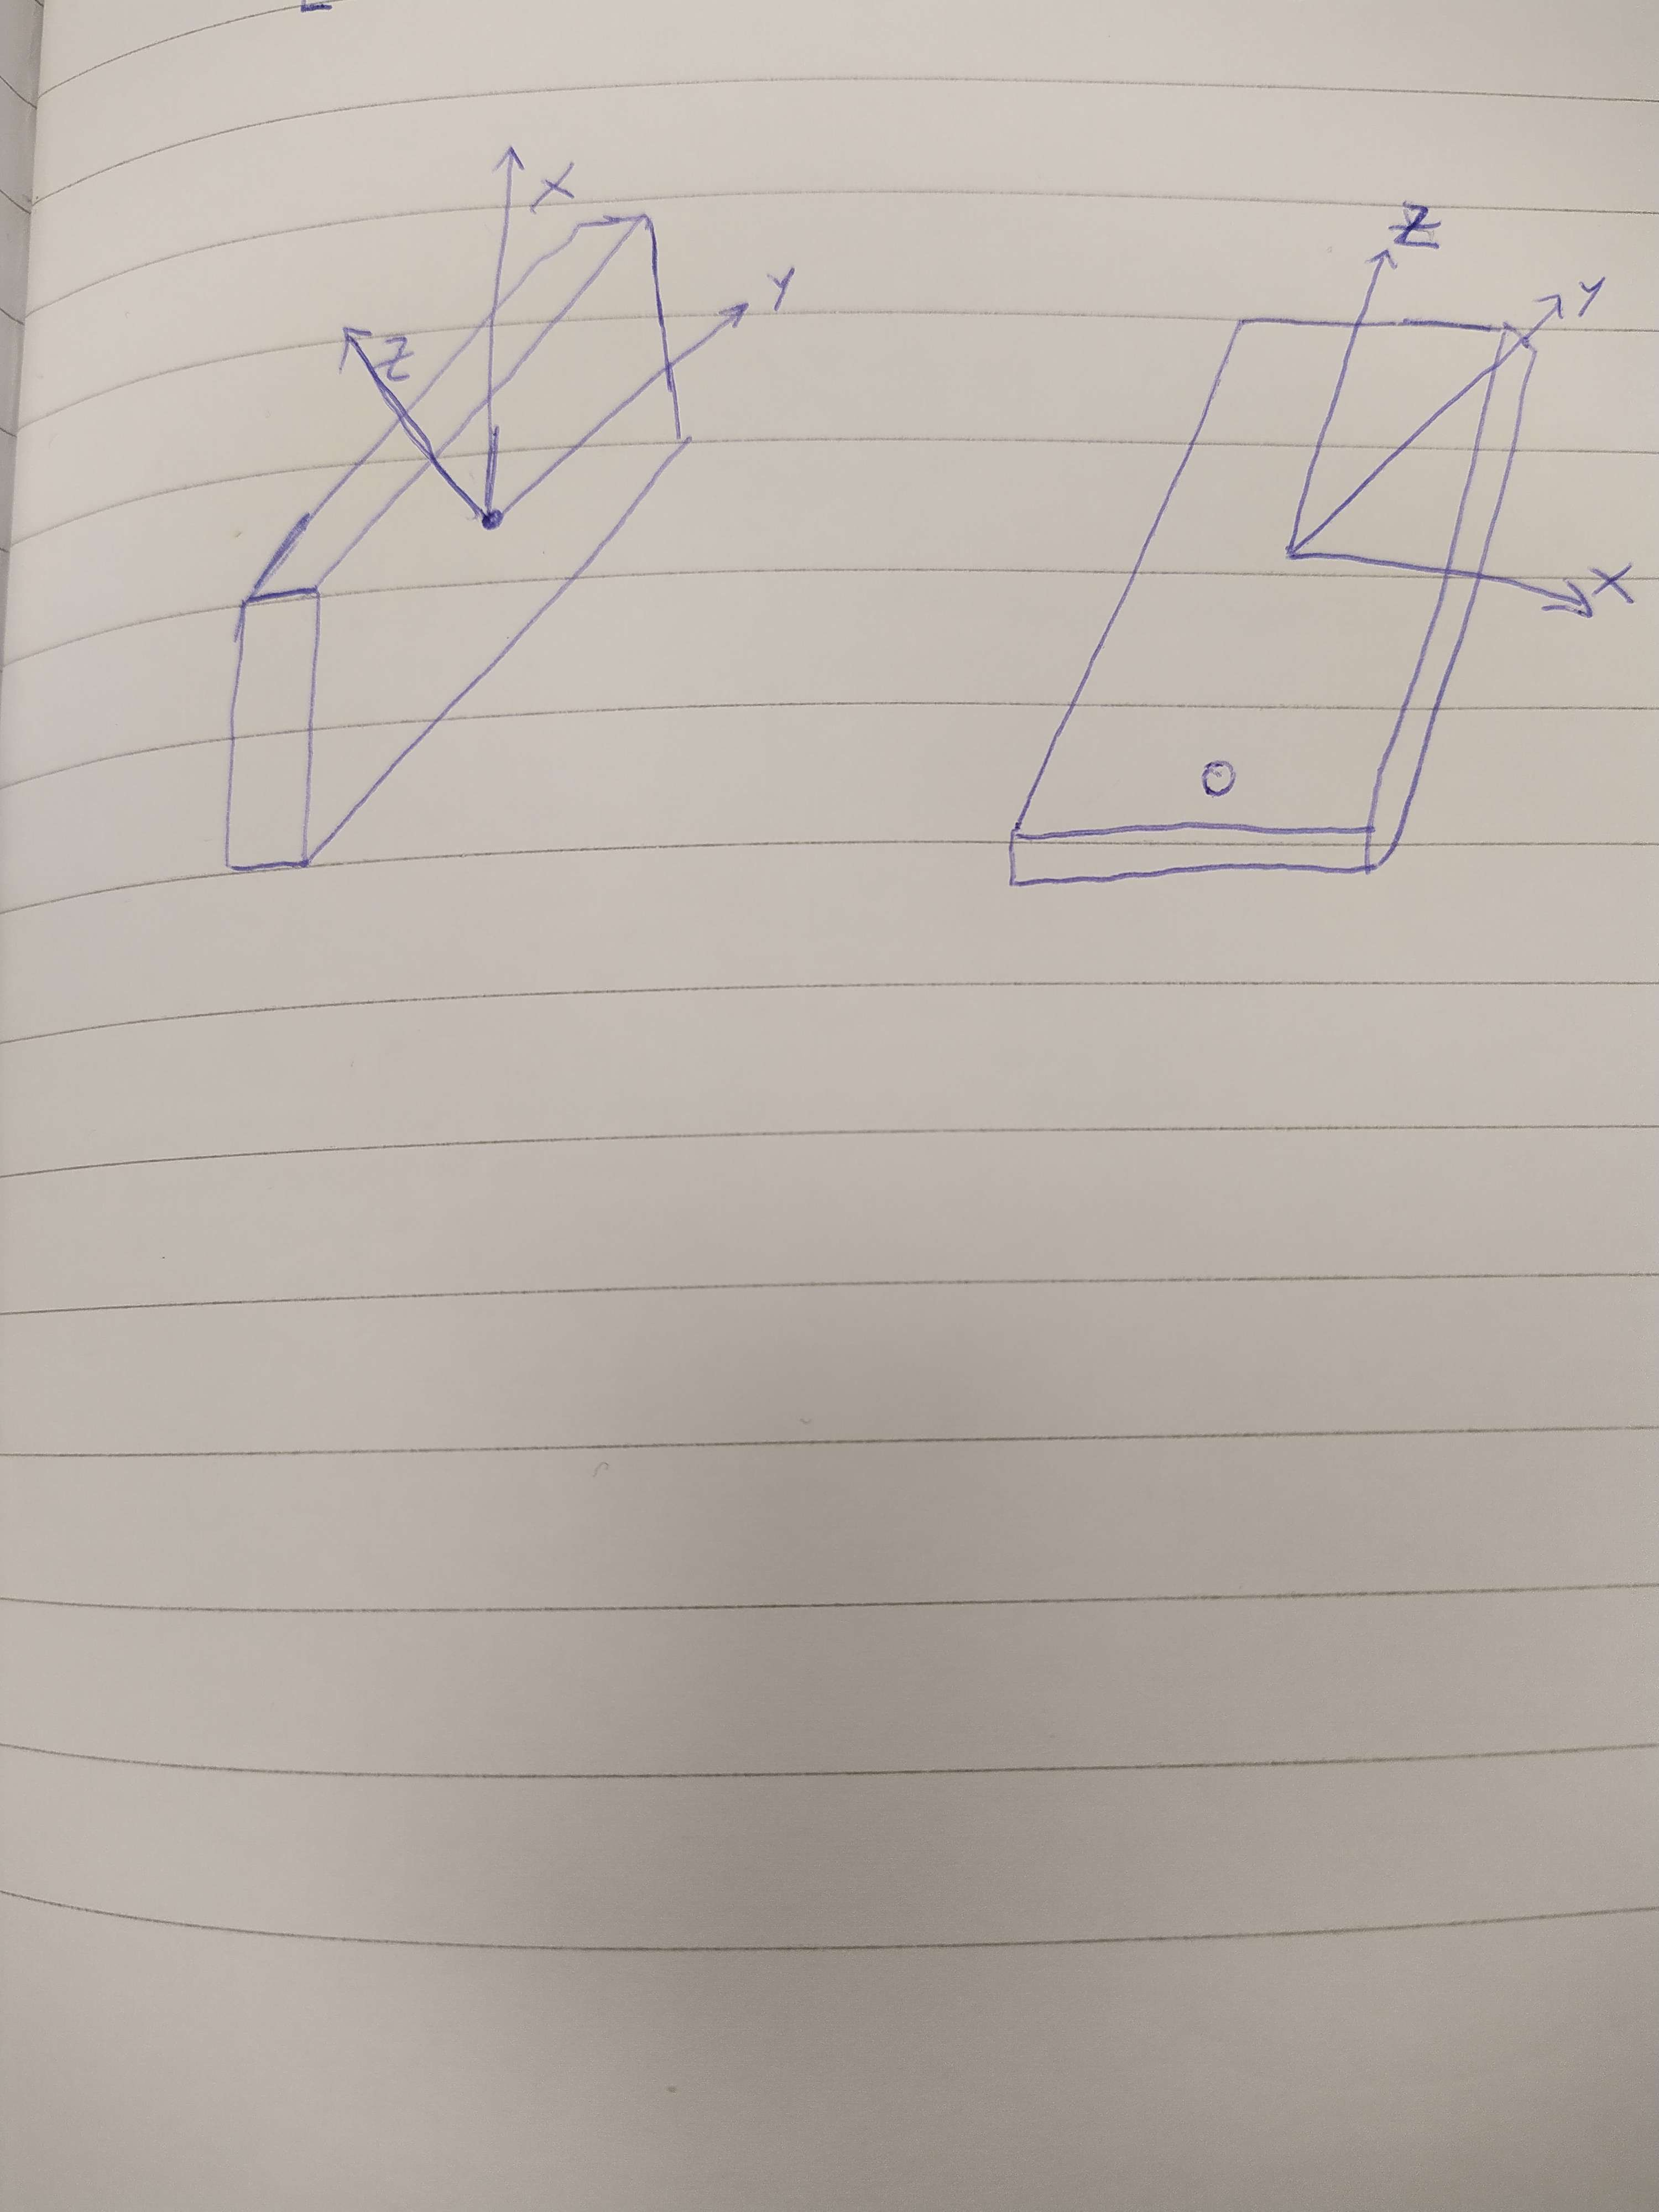 X
Y
Z
Z
Y
X